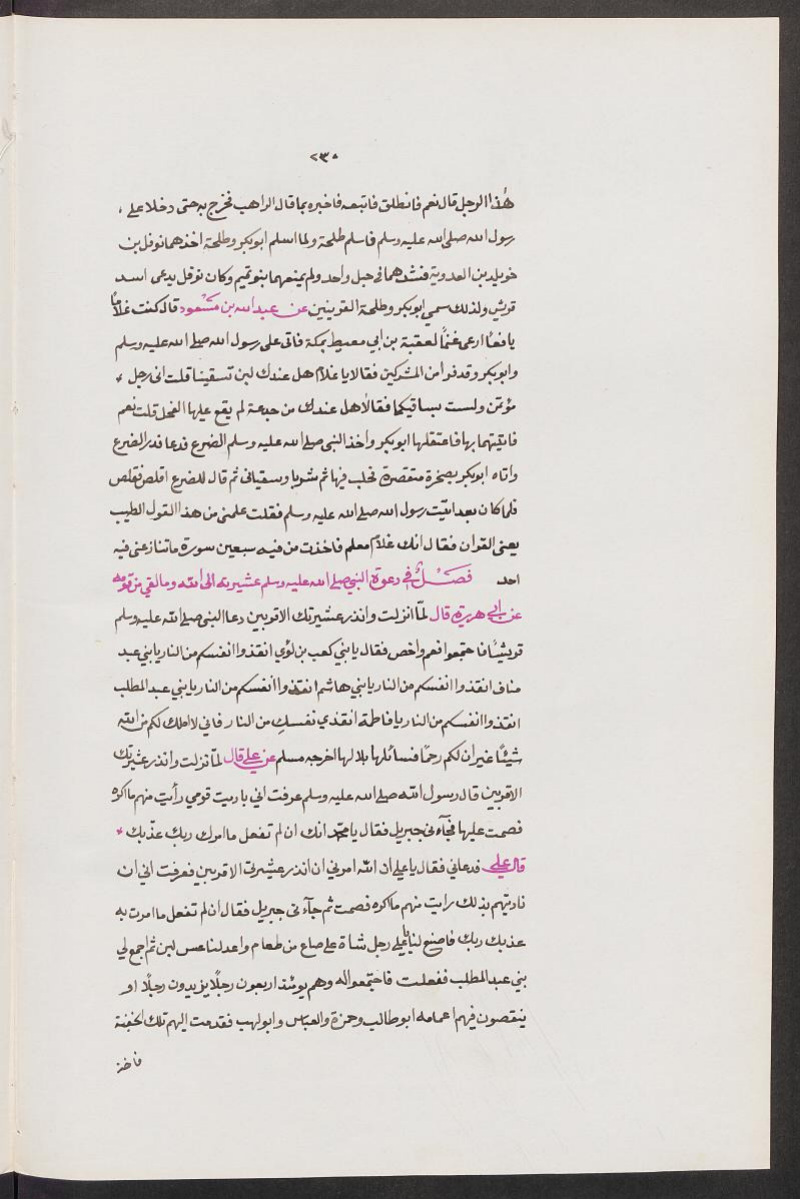 ٢٣٠
هذا الرجل قال نعم فانطلق فاتبعه فاخبره بما قال الراهب فخرج به حتى دخلا على
رسول الله صلى الله عليه وسلم فاسلم طلحة ولما اسلم ابوبكر وطلحة اخذهما نوفل بن
خويلد بن العدوية فشدهما في حبل واحد ولم يمنعهما بنوتميم وكان نوفل يدعى اسد
قريش ولذلك سمي ابوبكر وطلحة القرينين عن عبد الله بن مسعود قال كنت غلامًا
يافعًا ارعى غنمًا لعقبة بن ابي معيط بمكة فاتى على رسول الله صلى الله عليه وسلم
وابوبكر وقد فرا من المشركين فقالا يا غلام هل عندك لبن تسقينا قلت انى رجل
مؤتمن ولست بساقيكما فقالا هل عندك من جذعة لم يقع عليها الفحل قلت نعم
فاتيتهما بها فاعتقلها ابوبكر واخذ النبى صلى الله عليه وسلم الضرع فدعا فدر الضرع
واتاه ابوبكر بصخرة منقعرة فحلب فيها ثم شربا وسقيانى ثم قال للضرع اقلص فقلص
فلما كان بعد اتيت رسول الله صلى الله عليه وسلم فقلت علمنى من هذا القول الطيب
يعنى القران فقال انك غلام معلم فاخذت من فيه سبعين سورة ما تنازعنى فيه
احد فصل في دعوة النبى صلى الله عليه وسلم عشيرته الى الله وما لقي من قومه
عن ابي هريرة قال لمّا انزلت وانذر عشيرتك الاقربين دعا النبى صلى الله عليه وسلم
قريشًا فاجتمعوا فعم واخص فقال يا بني كعب بن لؤي انقذوا انفسكم من النار يا بني عبد
مناف انقذوا انفسكم من النار يا بني هاشم انقذوا انفسكم من النار يا بني عبد المطلب
انقذوا انفسكم من النار يا فاطمة انقذي نفسك من النار فاني لا املك لكم من الله
شيئًا غير ان لكم رحمًا فسائلها ببلالها اخرجه مسلم عن علي قال لمّا نزلت وانذر عشيرتك
الاقربين قال رسول الله صلى الله عليه وسلم عرفت اني بادیت قومي رأيت منهم ما اكره
فصمت عليها فجآءنى جبريل فقال يا محمد انك ان لم تفعل ما امرك ربك عذّبك
قال علي فدعاني فقال يا علي ان الله امرني ان انذر عشيرتى الاقربين فعرفت اني ان
ناديتهم بذلك رايت منهم ما اكره فصمت ثم جآءنى جبريل فقال ان لم تفعل ما امرت به
عذبك ربك فاصنع لنا يا علي رجل شاة على صاع من طعام واعد لنا عس لبن ثم اجمع لي
بني عبد المطلب ففعلت فاجتمعوا له وهم يومئذ اربعون رجلًا يزيدون رجلًا او
ينقصون فيهم اعمامه ابوطالب وحمزة والعباس وابولهب فقدمت اليهم تلك الجفنة
فاخذ